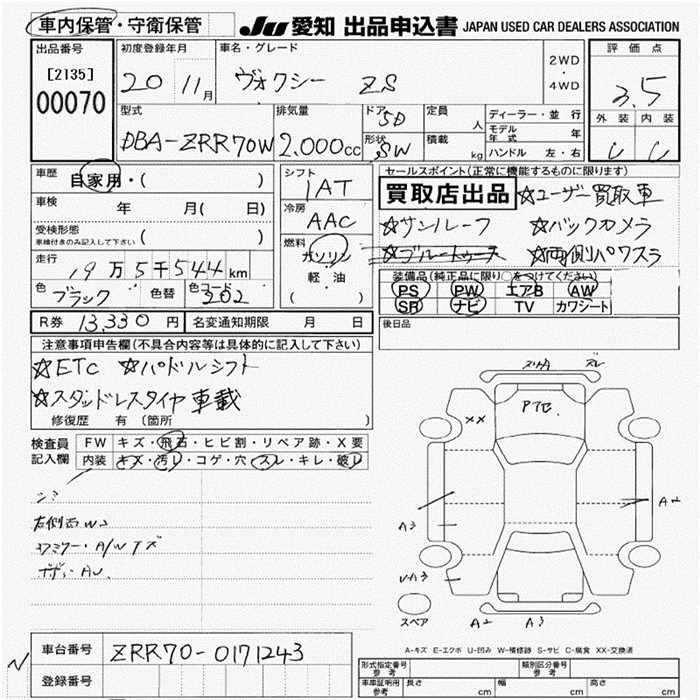 車内保管・守衛保管 JU 愛知 出品申込書 JAPAN USED CAR DEALERS ASSOCIATION
出品番号 初度登録年月 車名・グレード 評価点
[2135] 00070 20 11月 ヴォクシー ZS 2WD・4WD 3.5
型式 排気量 ドア 定員 ディーラー・並行 外装 内装
DBA-ZRR70W 2.000cc 5D 人 モデル年式 年
形状 SW 積載 kg ハンドル 左・右
車歴 自家用・( ) シフト IAT セールスポイント(正常に機能するものに限ります)
買取店出品 ☆ユーザー買取車
車検 年 月( 日) 冷房 AAC ☆サンルーフ ☆バックカメラ
受検形態 車検付きのみ記入して下さい ( ) 燃料 ガソリン 軽・油 ( ) ☆ブルートゥース ☆両側パワスラ
走行 19万5千544km
装備品(純正品に限り○をつけてください)
色 ブラック 色替 色コード 202 PS PW エアB AW
SR ナビ TV カワシート
R券 13,330円 名変通知期限 月 日 後日品
注意事項申告欄(不具合内容等は具体的に記入して下さい)
☆ETC ☆パドルシフト
☆スタッドレスタイヤ車載
修復歴 有(箇所 )
検査員記入欄 FW キズ・飛石・ヒビ割・リペア跡・X要
内装 キズ・汚レ・コゲ・穴・スレ・キレ・破レ
シミ
スレ
XX
A2
A3
A3
スペア A2 A3
A-キズ E-エクボ U-凹み W-補修跡 S-サビ C-腐食 XX-交換済
車台番号 ZRR70-0171243
登録番号
形式指定番号 参考 類別区分番号 参考
車庫証明用 参考 長さ cm 幅 cm 高さ cm